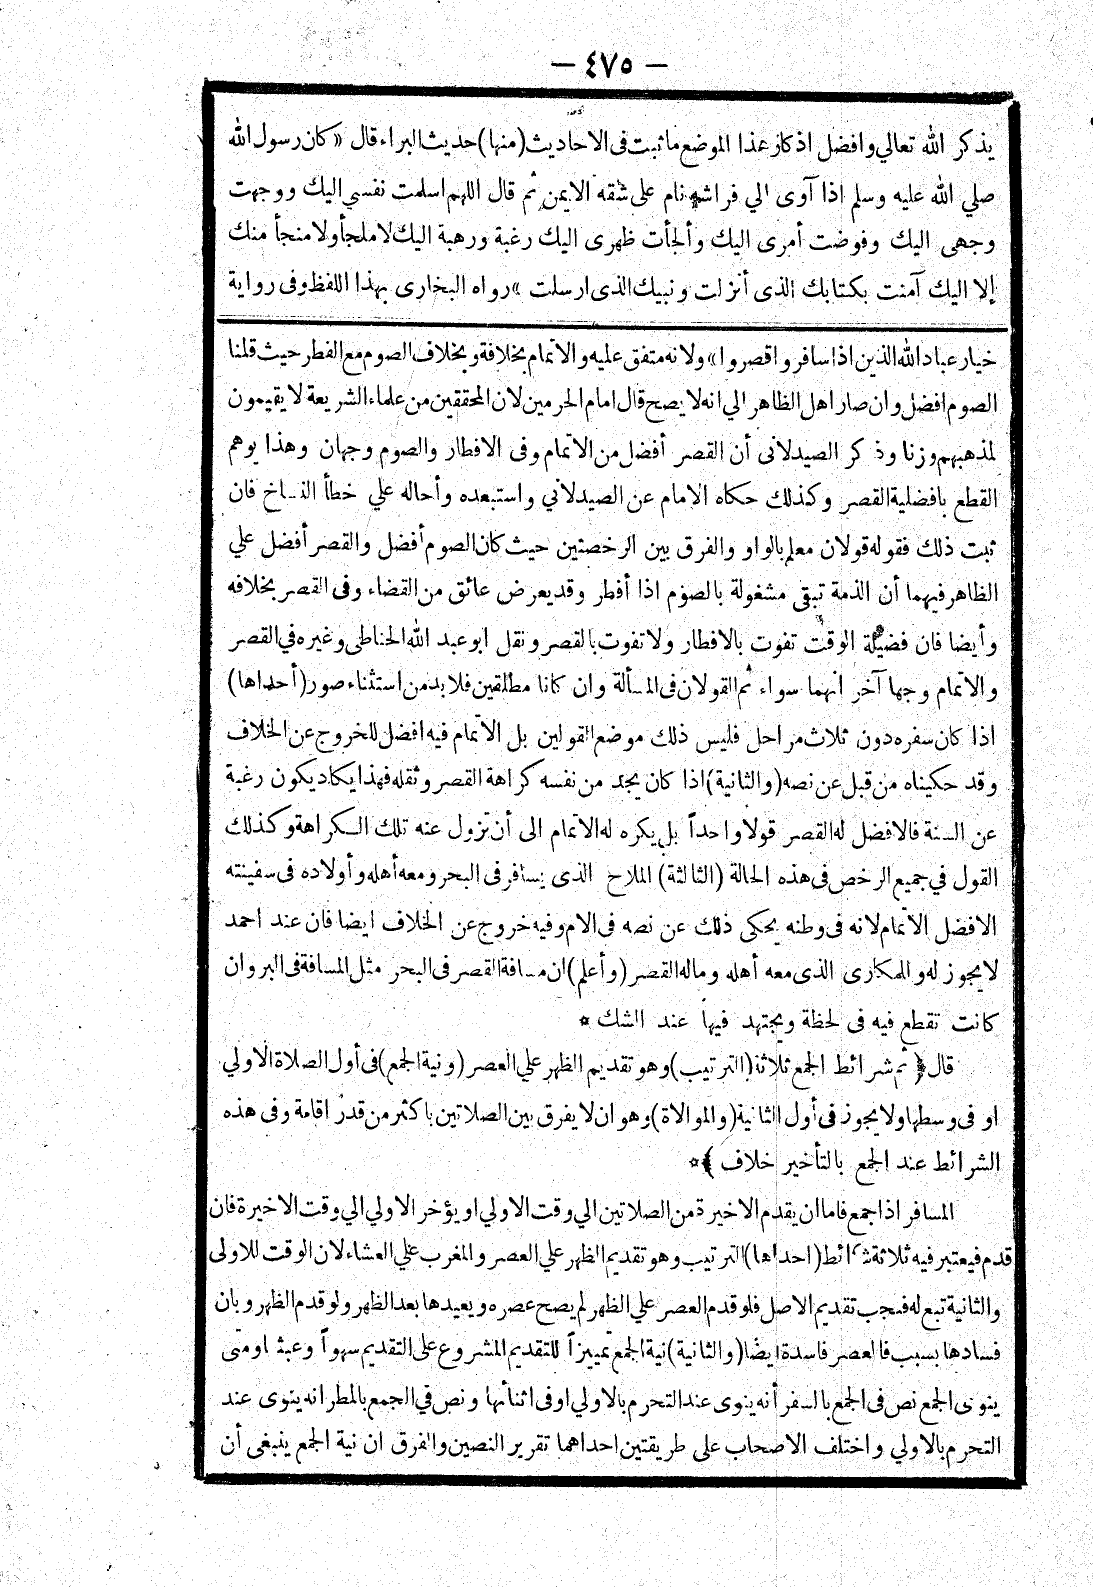 — ٤٧٥ —
يذكر الله تعالي وافضل اذكار هذا الموضع ما ثبت فى الاحاديث (منها) حديث البراء قال «كان رسول الله
صلي الله عليه وسلم اذا آوى الي فراشه نام على شقه الايمن ثم قال اللهم اسلمت نفسي اليك ووجهت
وجهى اليك وفوضت أمرى اليك وألجأت ظهرى اليك رغبة ورهبة اليك لا ملجأ ولا منجأ منك
إلا اليك آمنت بكتابك الذى أنزلت ونبيك الذى ارسلت » رواه البخارى بهذا اللفظ وفى رواية
خيار عباد الله الذين اذا سافروا قصروا» ولانه متفق عليه والاتمام بخلافة وبخلاف الصوم مع الفطر حيث قلنا
الصوم افضل وان صار اهل الظاهر الي انه لا يصح قال امام الحرمين لان المحققين من علماء الشريعة لا يقيمون
لمذهبهم وزنا وذكر الصيدلانى أن القصر أفضل من الاتمام وفى الافطار والصوم وجهان وهذا يوهم
القطع بافضلية القصر وكذلك حكاه الامام عن الصيدلاني واستبعده وأحاله علي خطأ النساخ فان
ثبت ذلك فقوله قولان معلم بالواو والفرق بين الرخصتين حيث كان الصوم أفضل والقصر أفضل علي
الظاهر فيهما أن الذمة تبقي مشغولة بالصوم اذا أفطر وقد يعرض عائق من القضاء وفى القصر بخلافه
وأيضا فان فضيلة الوقت تفوت بالافطار ولا تفوت بالقصر ونقل ابو عبد الله الحناطى وغيره في القصر
والاتمام وجها آخر انهما سواء ثم القولان فى المسألة وان كانا مطلقين فلا بد من استثناء صور (أحداها)
اذا كان سفره دون ثلاث مراحل فليس ذلك موضع القولين بل الاتمام فيه افضل للخروج عن الخلاف
وقد حكيناه من قبل عن نصه (والثانية) اذا كان يجد من نفسه كراهة القصر وثقله فهذا يكاد يكون رغبة
عن السنة فالافضل له القصر قولا واحداً بل يكره له الاتمام الى أن تزول عنه تلك الكراهة وكذلك
القول في جميع الرخص فى هذه الحالة (الثالثة) الملاح الذى يسافر فى البحر ومعه أهله وأولاده فى سفينته
الافضل الاتمام لانه فى وطنه يحكى ذلك عن نصه فى الام وفيه خروج عن الخلاف ايضا فان عند احمد
لا يجوز له والمكارى الذى معه أهله وماله القصر (وأعلم) ان مسافة القصر فى البحر مثل المسافة فى البر وان
كانت تقطع فيه فى لحظة ويجتهد فيها عند الشك *
قال ﴿ ثم شرائط الجمع ثلاثة (الترتيب) وهو تقديم الظهر علي العصر (ونية الجمع) فى أول الصلاة الاولي
او فى وسطها ولا يجوز فى أول الثانية (والموالاة) وهو ان لا يفرق بين الصلاتين باكثر من قدر اقامة وفى هذه
الشرائط عند الجمع بالتأخير خلاف ﴾*
المسافر اذا جمع فاما ان يقدم الاخيرة من الصلاتين الي وقت الاولي او يؤخر الاولي الي وقت الاخيرة فان
قدم فيعتبر فيه ثلاثة شرائط (احداها) الترتيب وهو تقديم الظهر علي العصر والمغرب علي العشاء لان الوقت للاولى
والثانية تبع له فيجب تقديم الاصل فلو قدم العصر علي الظهر لم يصح عصره ويعيدها بعد الظهر ولو قدم الظهر وبان
فسادها بسبب فالعصر فاسدة ايضا (والثانية) نية الجمع تمييزاً للتقديم المشروع على التقديم سهواً وعبثا ومتى
ينوى الجمع نص فى الجمع بالسفر أنه ينوى عند التحرم بالاولي او فى اثنائها ونص في الجمع بالمطر انه ينوى عند
التحرم بالاولي واختلف الاصحاب على طريقتين احداهما تقرير النصين والفرق ان نية الجمع ينبغى أن